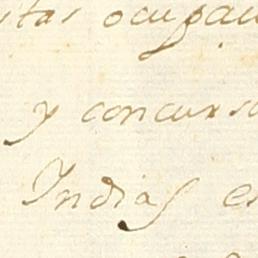 stas ocupac
y concurso
Indias es